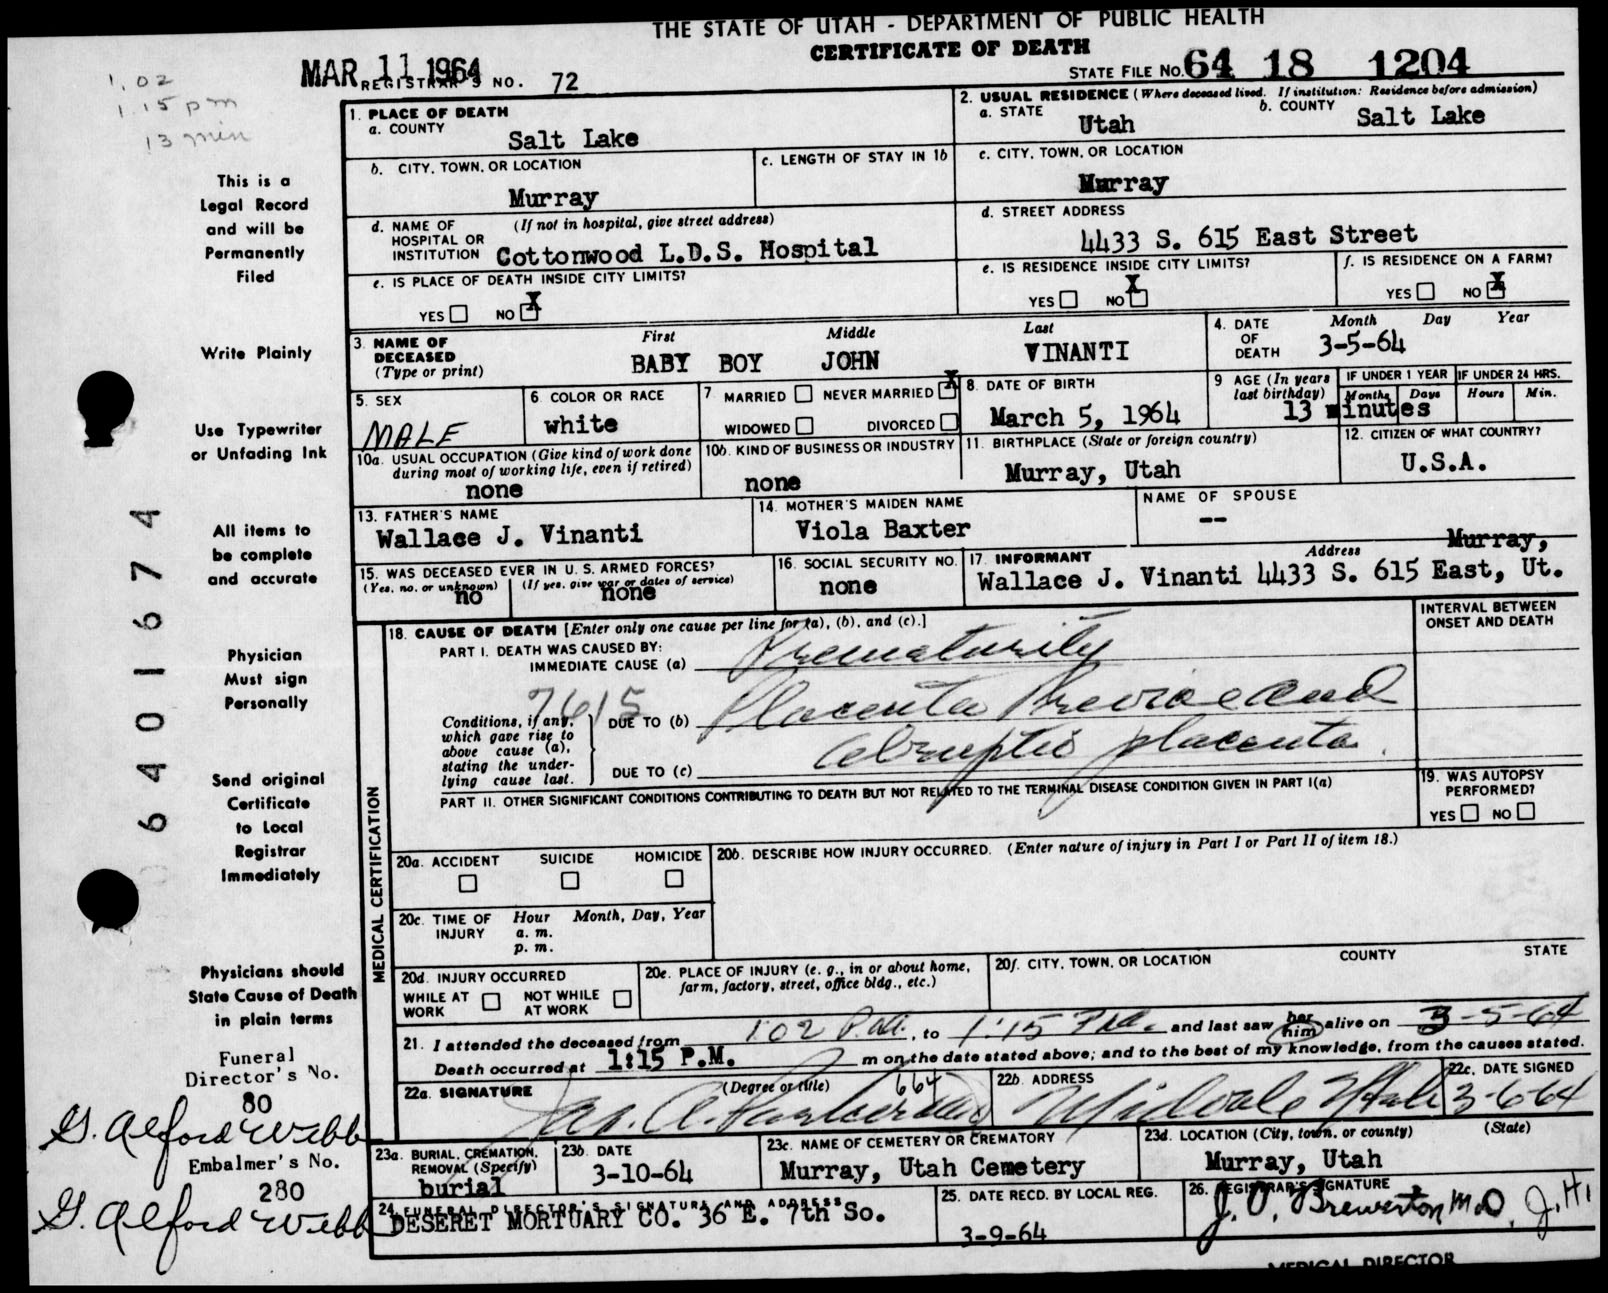 THE STATE OF UTAH - DEPARTMENT OF PUBLIC HEALTH
CERTIFICATE OF DEATH
MAR 11 1964
REGISTRAR'S NO. 72
STATE FILE NO. 64 18 1204
1.02
1.15 pm
13 min
This is a
Legal Record
and will be
Permanently
Filed
Write Plainly
Use Typewriter
or Unfading Ink
All items to
be complete
and accurate
Physician
Must sign
Personally
Send original
Certificate
to Local
Registrar
Immediately
Physicians should
State Cause of Death
in plain terms
Funeral
Director's No.
80
G. Alford Webb
Embalmer's No.
280
G. Alford Webb
6401674
1. PLACE OF DEATH
a. COUNTY
Salt Lake
2. USUAL RESIDENCE (Where deceased lived. If institution: Residence before admission)
a. STATE
Utah
b. COUNTY
Salt Lake
b. CITY, TOWN, OR LOCATION
Murray
c. LENGTH OF STAY IN 1b
c. CITY, TOWN, OR LOCATION
Murray
d. NAME OF HOSPITAL OR INSTITUTION
(If not in hospital, give street address)
Cottonwood L.D.S. Hospital
d. STREET ADDRESS
4433 S. 615 East Street
e. IS PLACE OF DEATH INSIDE CITY LIMITS?
YES NO X
e. IS RESIDENCE INSIDE CITY LIMITS?
YES NO X
f. IS RESIDENCE ON A FARM?
YES NO X
3. NAME OF DECEASED (Type or print)
First Middle Last
BABY BOY JOHN VINANTI
4. DATE OF DEATH
Month Day Year
3-5-64
5. SEX
MALE
6. COLOR OR RACE
white
7 MARRIED NEVER MARRIED X
WIDOWED DIVORCED
8. DATE OF BIRTH
March 5, 1964
9 AGE (In years last birthday)
IF UNDER 1 YEAR
Months Days
IF UNDER 24 HRS.
Hours Min.
13 minutes
10a. USUAL OCCUPATION (Give kind of work done during most of working life, even if retired)
none
10b. KIND OF BUSINESS OR INDUSTRY
none
11. BIRTHPLACE (State or foreign country)
Murray, Utah
12. CITIZEN OF WHAT COUNTRY?
U.S.A.
13. FATHER'S NAME
Wallace J. Vinanti
14. MOTHER'S MAIDEN NAME
Viola Baxter
NAME OF SPOUSE
--
15. WAS DECEASED EVER IN U. S. ARMED FORCES?
(Yes, no. or unknown)
no
(If yes. give war or dates of service)
none
16. SOCIAL SECURITY NO.
none
17. INFORMANT Address
Murray,
Wallace J. Vinanti 4433 S. 615 East, Ut.
MEDICAL CERTIFICATION
18. CAUSE OF DEATH [Enter only one cause per line for (a), (b), and (c).]
INTERVAL BETWEEN ONSET AND DEATH
PART I. DEATH WAS CAUSED BY:
IMMEDIATE CAUSE (a) Prematurity
7615
Conditions, if any, which gave rise to above cause (a), stating the underlying cause last.
DUE TO (b) Placenta Previa and
abruptio placenta.
DUE TO (c)
PART II. OTHER SIGNIFICANT CONDITIONS CONTRIBUTING TO DEATH BUT NOT RELATED TO THE TERMINAL DISEASE CONDITION GIVEN IN PART I(a)
19. WAS AUTOPSY PERFORMED?
YES NO
20a. ACCIDENT SUICIDE HOMICIDE
20b. DESCRIBE HOW INJURY OCCURRED. (Enter nature of injury in Part I or Part II of item 18.)
20c. TIME OF INJURY
Hour Month, Day, Year
a. m.
p. m.
20d. INJURY OCCURRED
WHILE AT WORK NOT WHILE AT WORK
20e. PLACE OF INJURY (e. g., in or about home, farm, factory, street, office bldg., etc.)
20f. CITY, TOWN, OR LOCATION COUNTY STATE
21. I attended the deceased from 1:02 P.M., to 1:15 P.M. and last saw her him alive on 3-5-64
Death occurred at 1:15 P.M. m on the date stated above; and to the best of my knowledge, from the causes stated.
22a. SIGNATURE (Degree or title)
664
22b. ADDRESS
Midvale Utah
22c. DATE SIGNED
3-6-64
23a. BURIAL, CREMATION, REMOVAL (Specify)
burial
23b. DATE
3-10-64
23c. NAME OF CEMETERY OR CREMATORY
Murray, Utah Cemetery
23d. LOCATION (City, town, or county) (State)
Murray, Utah
24. FUNERAL DIRECTOR'S SIGNATURE AND ADDRESS
DESERET MORTUARY CO. 36 E. 7th So.
25. DATE RECD. BY LOCAL REG.
3-9-64
26. REGISTRAR'S SIGNATURE
J. O. Brewerton M.D. J.H.
MEDICAL DIRECTOR